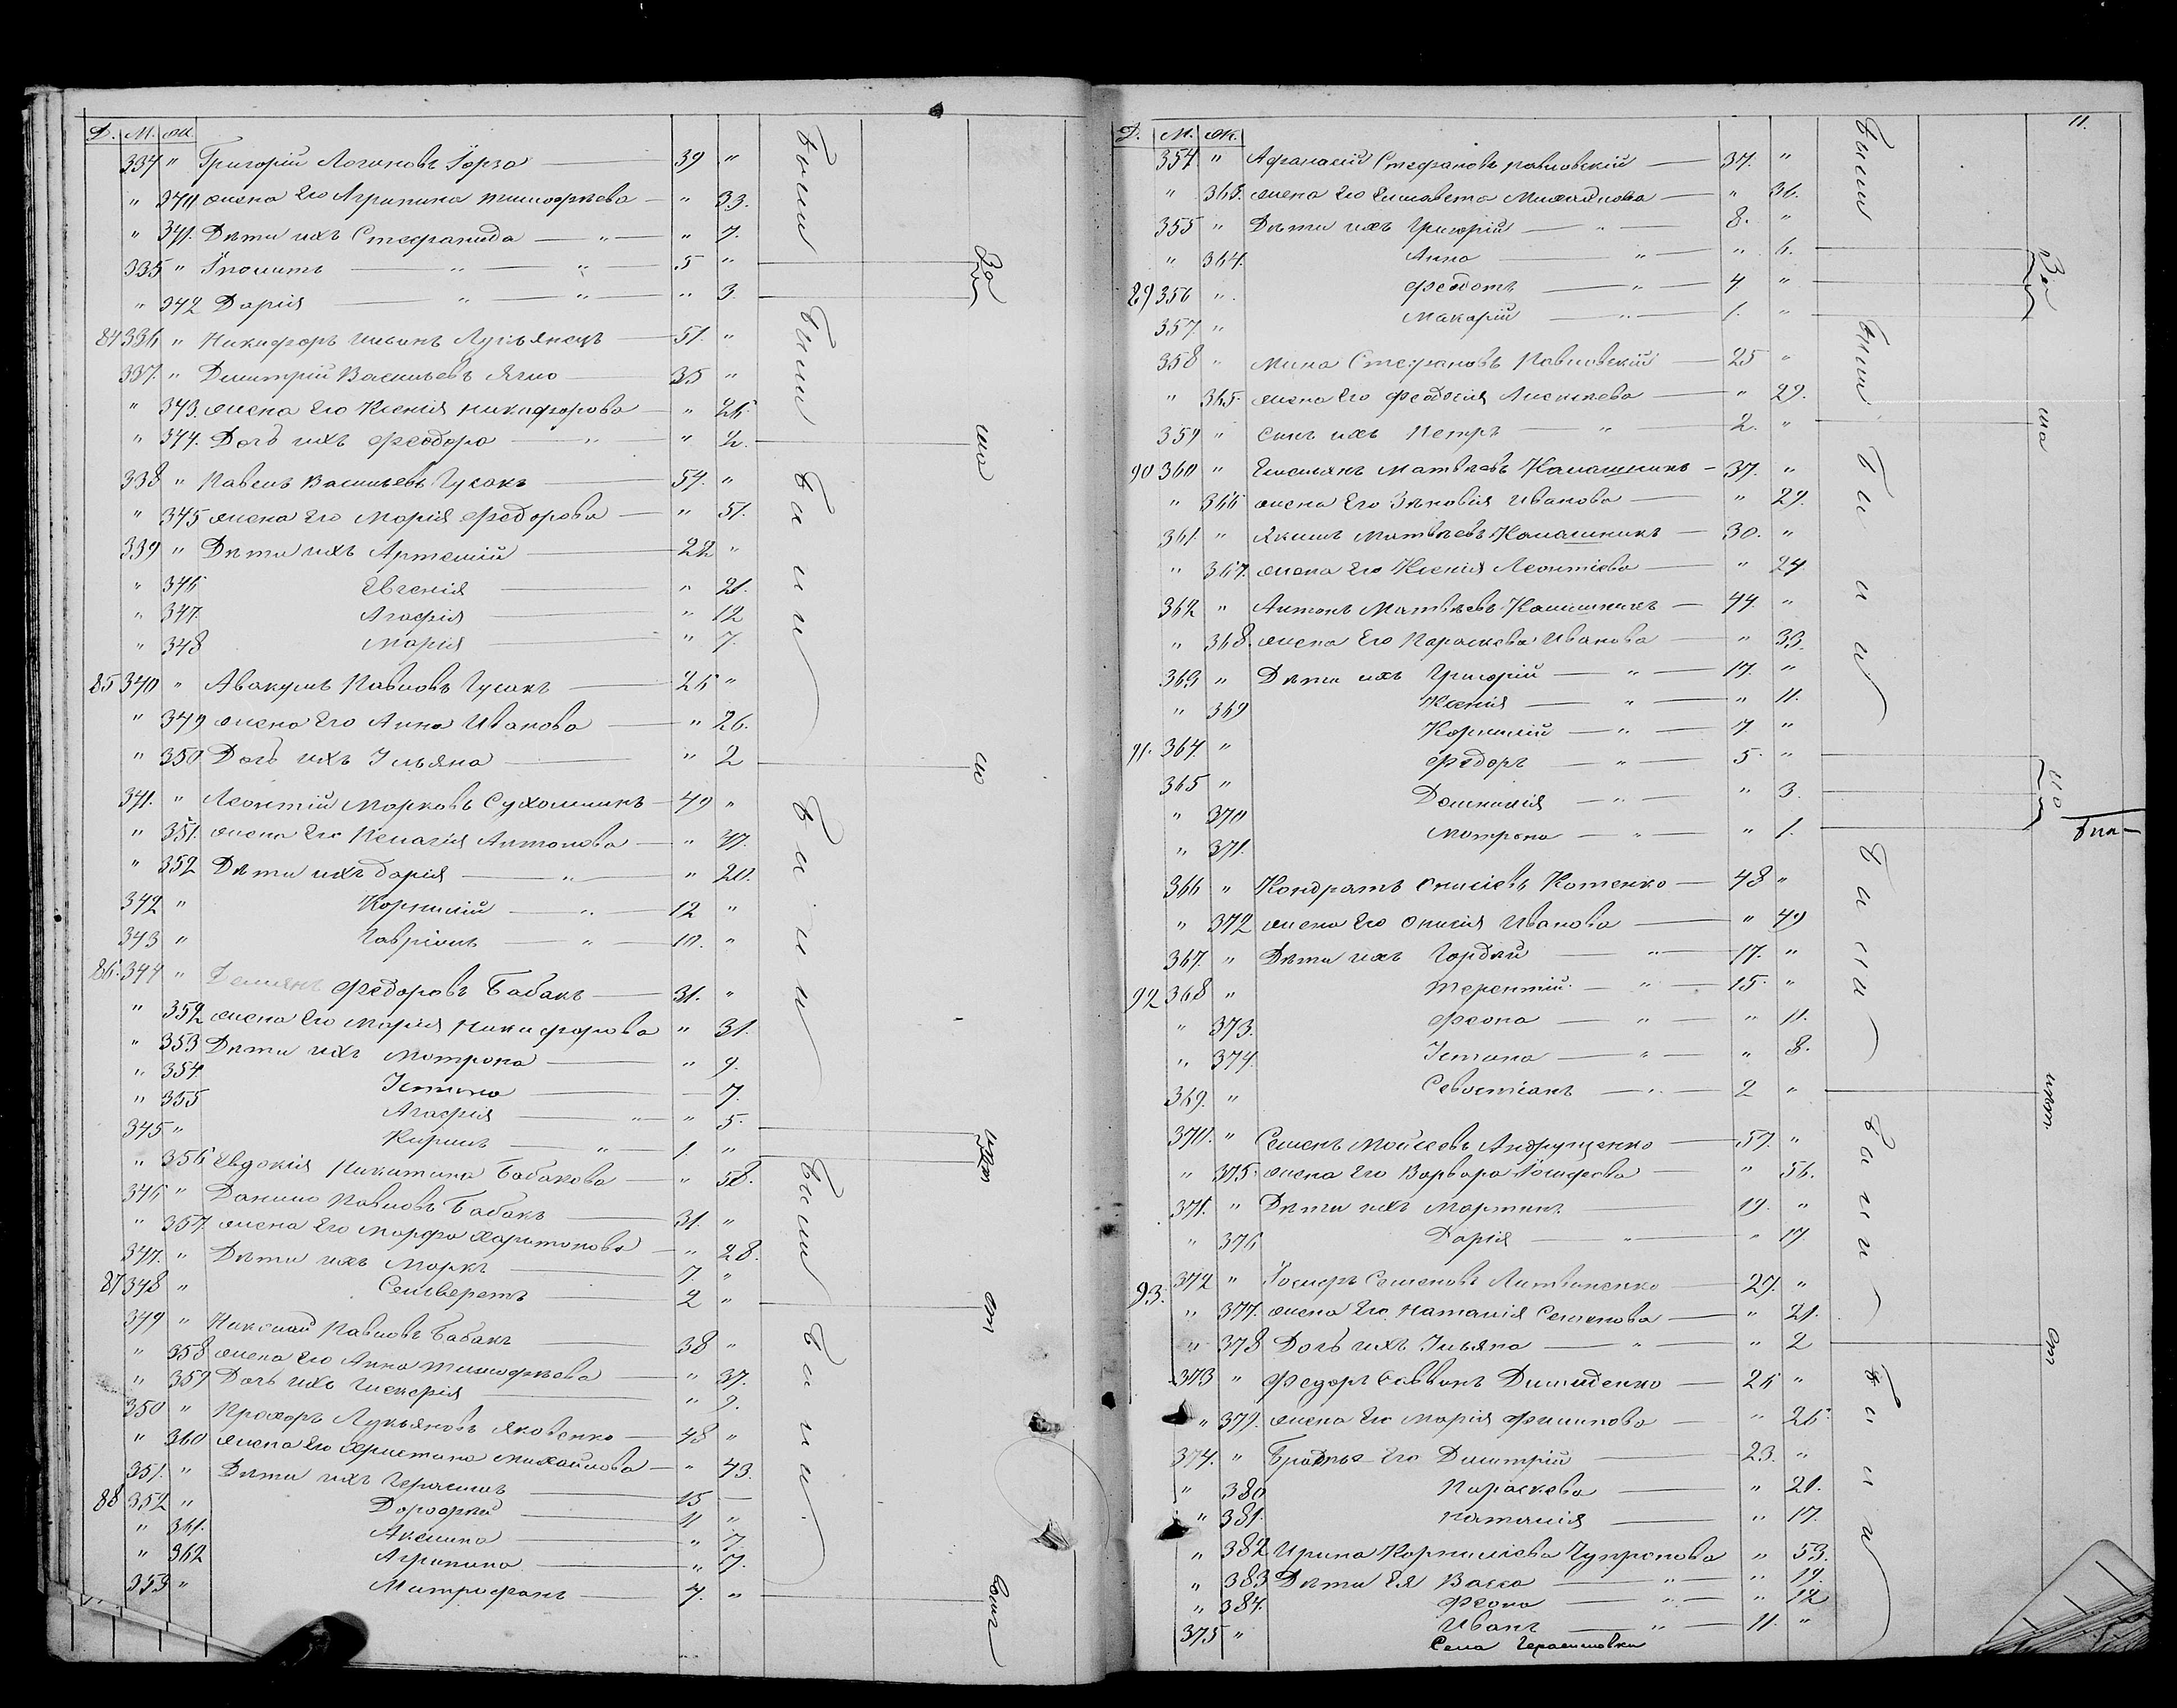 Д. М. Ж.
334 " Григорій Логиновъ Горзо — 39 "
" 340 жена его Агрипина тимофѣева — " 33.
" 341. Дѣти ихъ Стефанида — " — " 7.
335 " Їполитъ — " — " — 5 "
" 342 Дарія — " — " — " 3.
84 336 " Никифоръ Ильинъ — 51. "
337. " Димитрій Васильевъ Ягло — 35 "
" 343. жена его Ксенія никифорова — " 25.
" 344. Дочь ихъ Феодора — " — " 2.
338 " Павелъ Васильевъ Гусакъ — 54. "
" 345 жена его Марія Федорова — " 51.
339 " Дѣти ихъ Артемій — 22 "
" 346 Евгенія — " 21.
" 347. Агафія — " 12
" 348 Марія — " 7.
85 340 " Авакумъ Павловъ Гусакъ — 25 "
" 349 жена его Анна Иванова — " 26.
" 350 Дочь ихъ Іульяна — " 2
341. " Леонтій Марковъ Сухомлинъ — 49 "
" 351. жена его Пелагія Антонова — " 47.
" 352 Дѣти ихъ Дарія — " — " 20.
342 " Корнилій — " — 12 "
343 " Гавріилъ — " — 10. "
86. 344 " Демянъ Федоровъ Бабакъ — 31. "
" 352 жена его Марія Никифорова " 31.
" 353 Дѣти ихъ Мотрона — " 9.
" 354 Істина — 7.
" 355 Агафія — " — " 5.
345 " Кирилъ — " — 1. "
" 356 Евдокія Никитина Бабакова — " 58.
346 " Данило Павловъ Бабакъ — 31. "
" 357. жена его Марфа Харитонова — " 28.
347. " Дѣти ихъ Маркъ — 7. "
87 348 " Селиверстъ — 2 "
349 " Николай Павловъ Бабакъ — 38 "
" 358 жена его Анна тимофѣева — " 37.
" 359 Дочь ихъ Гликерія — " 9.
350 " Прохоръ Лукьяновъ Яковенко — 48 "
" 360 жена его Христина михайлова — " 43.
351. " Дѣти ихъ Герасимъ — 15 —
88 352 " Дорофѣй — 11 "
" 361. Акелина — " 7.
" 362 Агрипина — " 7.
353 " Митрофанъ — 4. "
Были Были Были Были Были Были
За
11.
Д. М. Ж.
354 " Афанасій Стефановъ павловскій — 37. "
" 363. жена его Елисавета Михайлова — " 36.
355 " Дѣти ихъ Григорій — " — 8. "
" 364. Анна — " — " 6.
89 356 " Феодотъ — " — 4 "
357. " Макарій — " — 1. "
358 " Мина Стефановъ Павловскій — 25 "
" 365. жена его Феодосія Алексѣева — " 22.
359 " Сынъ ихъ Петръ — " — 2. "
90 360 " Емельянъ матвѣевъ Калашникъ — 37. "
" 366 жена его Зѣновія Иванова — " 29.
361. " Якимъ матвѣевъ Калашникъ — 30. "
" 367. жена его Ксенія Леонтіева — " 24
362 " Антонъ Матвѣевъ Калашникъ — 44. "
" 368. жена его Параскева Иванова — " 33.
363 " Дѣти ихъ Григорій — " — 17. "
" 369 Ксенія — " — " 11.
Корнилій — " — 7 "
91. 364. " Федоръ — " — 5. "
365 " Домникія — " — " 3.
" 370 Мотрона — " — " 1.
" 371.
366 " Кондратъ Онисіевъ Котенко — 48 "
" 372 жена его Онисія Иванова — " 49
367. " Дѣти ихъ Гордѣй — " — 17. "
92 368 " терентій — " — 15. "
" 373. Феона — " — " 11.
" 374. Істина — " — " 8.
369. " Севостіанъ — " — 2 "
370. " Семенъ Мойсеевъ Андрущенко — 57. "
" 375. жена его Варвара Іосифова — " 56.
371. " Дѣти ихъ Мартинъ — 19. "
" 376 Дарія — " — " 17
93. 372 " Іосифъ Семеновъ Литвиненко — 27. "
" 377. жена его Наталія Семенова — " 21.
" 378 Дочь ихъ Іульяна — " — " 2
373 " Федоръ Саввинъ Димиденко — 25 "
" 379. жена его Марія Филипова — " 25.
374. " Братья его Димитрій — 23. "
" 380 Параскева — " 21.
" 381. наталія — " 17.
" 382 Ирина Корниліева Чупрынова " 53.
" 383 Дѣти ея Васса — " — " 19.
" 384. Феона — " — " 12
375 " Иванъ — " — 11. "
Села Герасимовки
Были Были Были Были Были Были
За